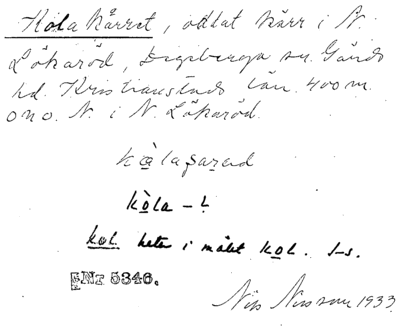 Kola kärret, odlat kärr i N.
Lökaröd, Degeberga sn. Gärds
hd. Kristianstads län. 400 m.
ono. N. i N. Lökaröd.
kòla - L
kol heter i målet kol. s-s.
ENr 5346.
Nils Nilsson 1933